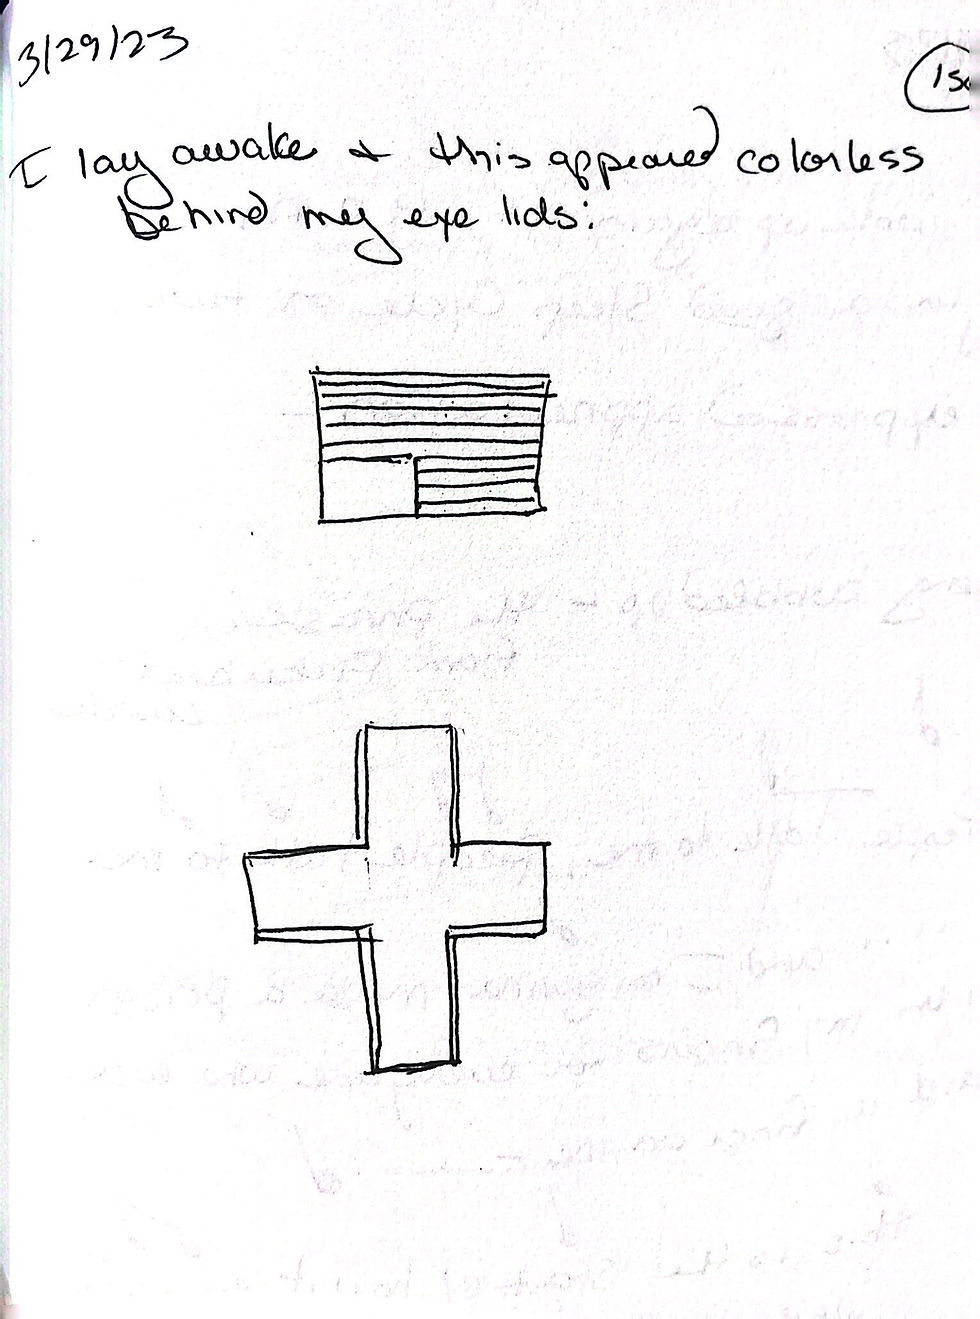 3/29/23
I lay awake & this appeared colorless
behind my eye lids: